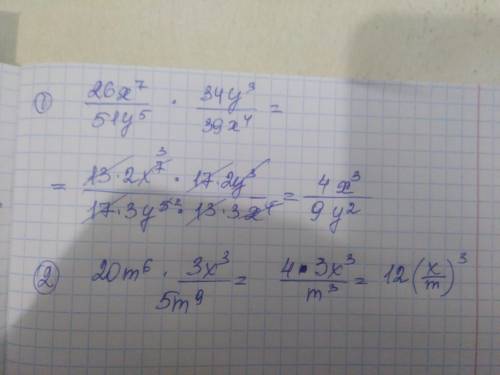 ① 26x⁷/51y⁵ · 34y³/39x⁴ =
= 13·2x⁷ ³ · 17·2y³ / 17·3y⁵ ² · 13·3x⁴ = 4x³/9y²
② 20m⁶ · 3x³/5m⁹ = 4·3x³/m³ = 12(x/m)³